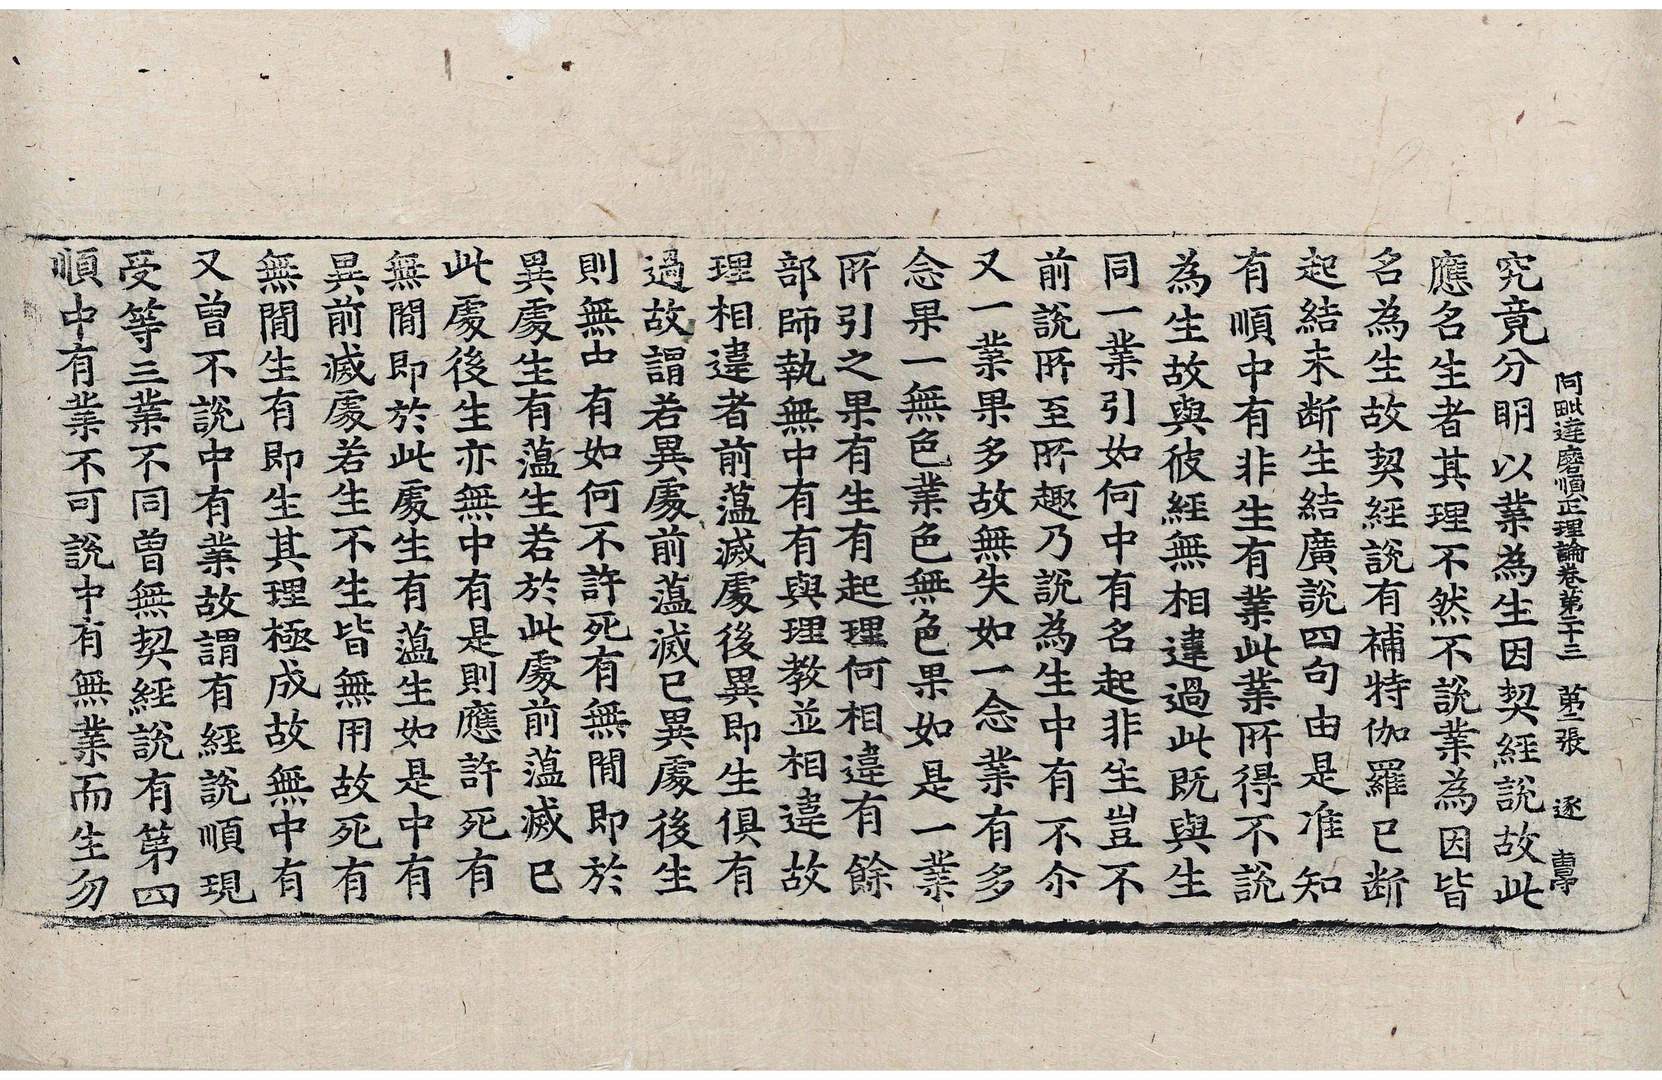 阿毗達磨順正理論卷第二十三 第二張 逐
究竟分明以業為生因契經說故此
應名生者其理不然不說業為因皆
名為生故契經說有補特伽羅已斷
起結未斷生結廣說四句由是准知
有順中有非生有業此業所得不說
為生故與彼經無相違過此既與生
同一業引如何中有名起非生豈不
前說所至所趣乃說為生中有不尒
又一業果多故無失如一念業有多
念果一無色業色無色果如是一業
所引之果有生有起理何相違有餘
部師執無中有有與理教並相違故
理相違者前蕰滅處後異即生俱有
過故謂若異處前蕰滅已異處後生
則無中有如何不許死有無間即於
異處生有蕰生若於此處前蕰滅已
此處後生亦無中有是則應許死有
無間即於此處生有蕰生如是中有
異前滅處若生不生皆無用故死有
無間生有即生其理極成故無中有
又曾不說中有業故謂有經說順現
受等三業不同曾無契經說有第四
順中有業不可說中有無業而生勿